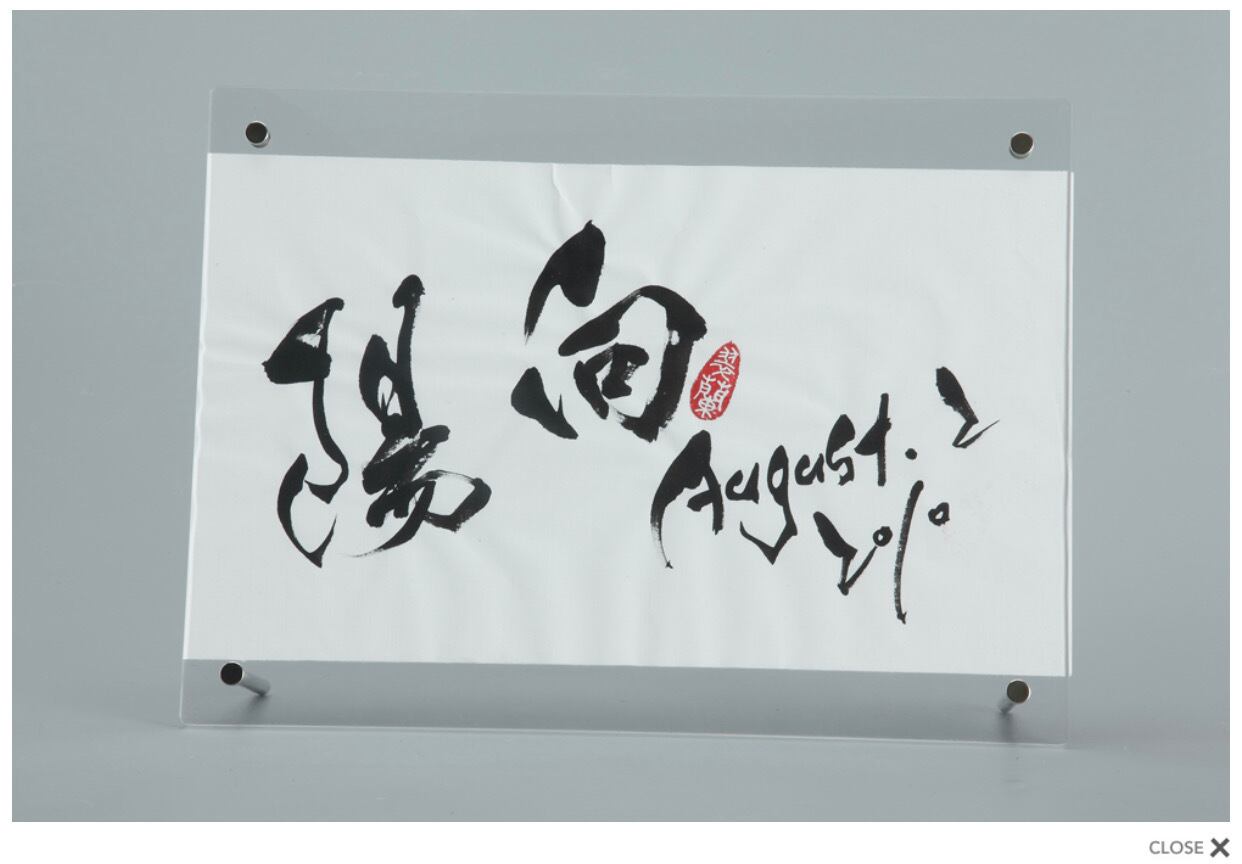 陽向
August. 2
2010
CLOSE